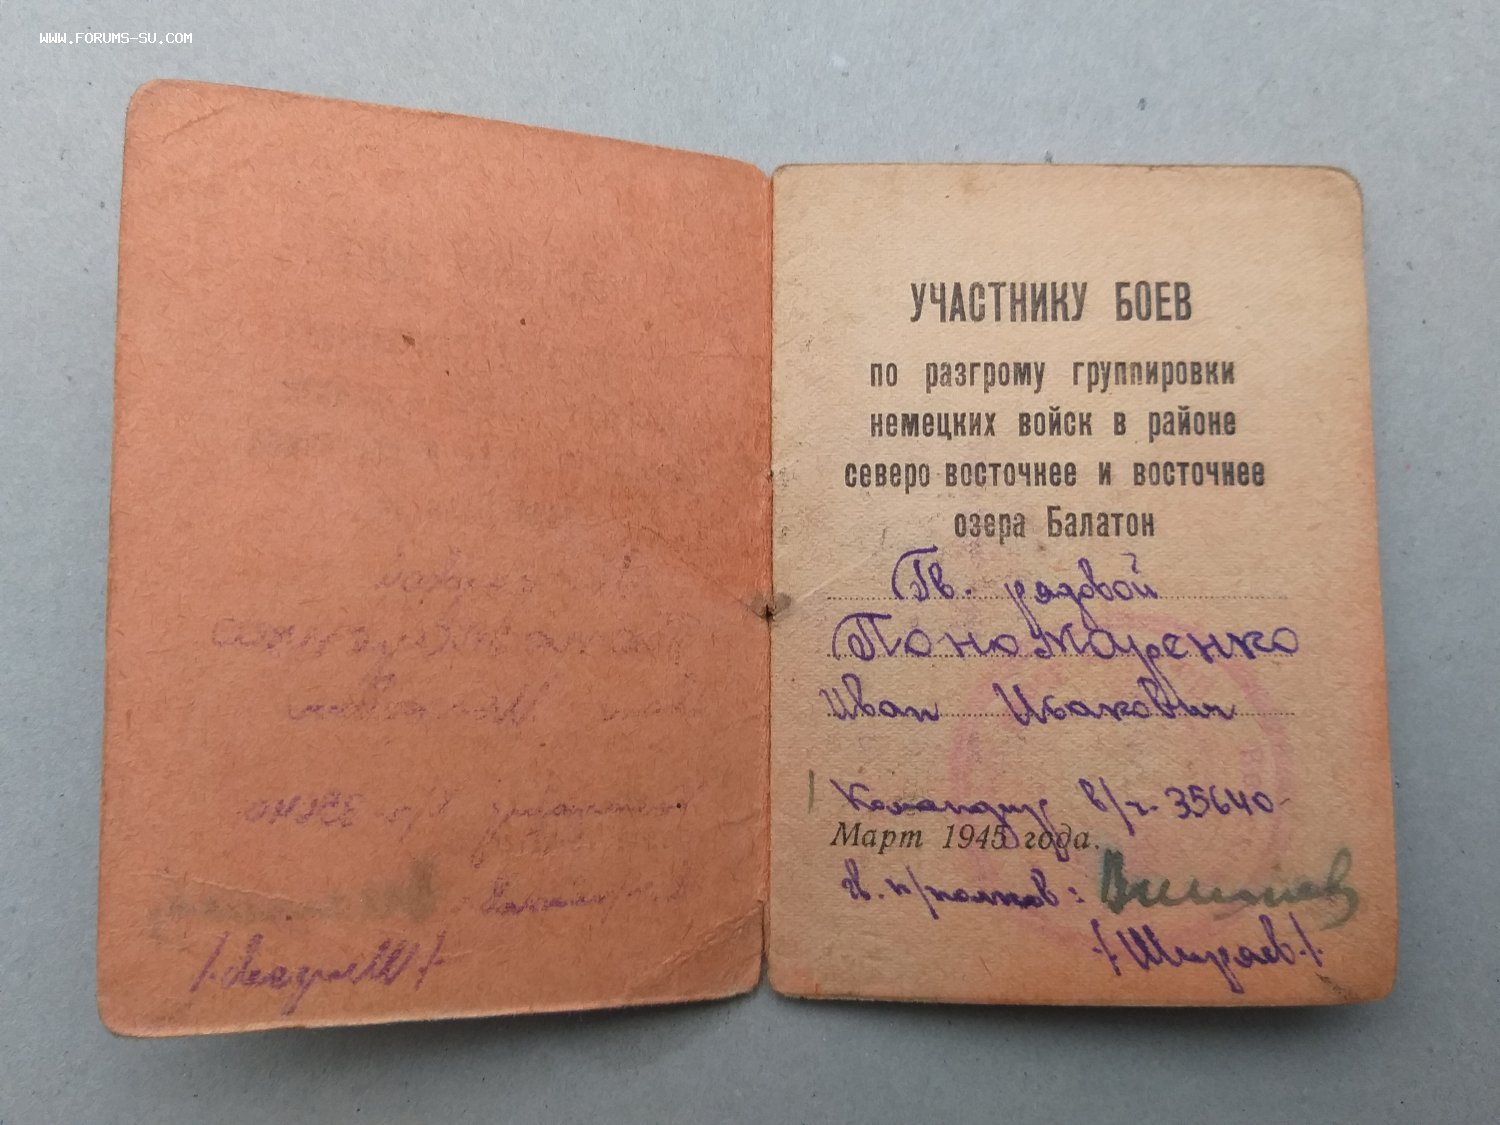 WWW.FORUMS-SU.COM
УЧАСТНИКУ БОЕВ
по разгрому группировки
немецких войск в районе
северо восточнее и восточнее
озера Балатон
Гв. рядовой
Пономаренко
Иван Исакович
Командир в/ч 35640
Март 1945 года.
Гв. п/полков:
/Ширяев/